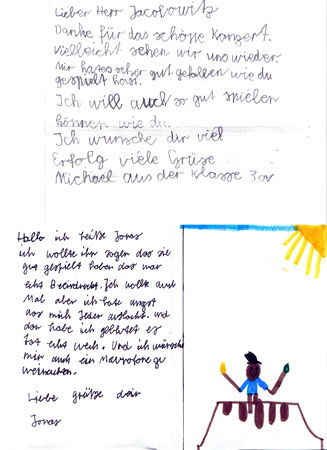 Lieber Herr Jacobowitz
Danke für das schöne Konzert.
Vielleicht sehen wir uns wieder.
Mir hat es seher gut gefallen wie du
gespielt hast.
Ich will auch so gut spielen
können wie du.
Ich wünsche dir viel
Erfolg viele Grüse
Michael aus der Klasse
Hallo ich heiße Jonas
ich wollte ihn sagen das sie
gut gespielt haben das war
echt Ich wollte auch
Mal aber ich hate angst
das mich Jeder auslacht. und
dan habe ich es
tat echt weh. Und ich wünsche
mir auch ein zu
weinachten.
Liebe grüße dein
Jonas